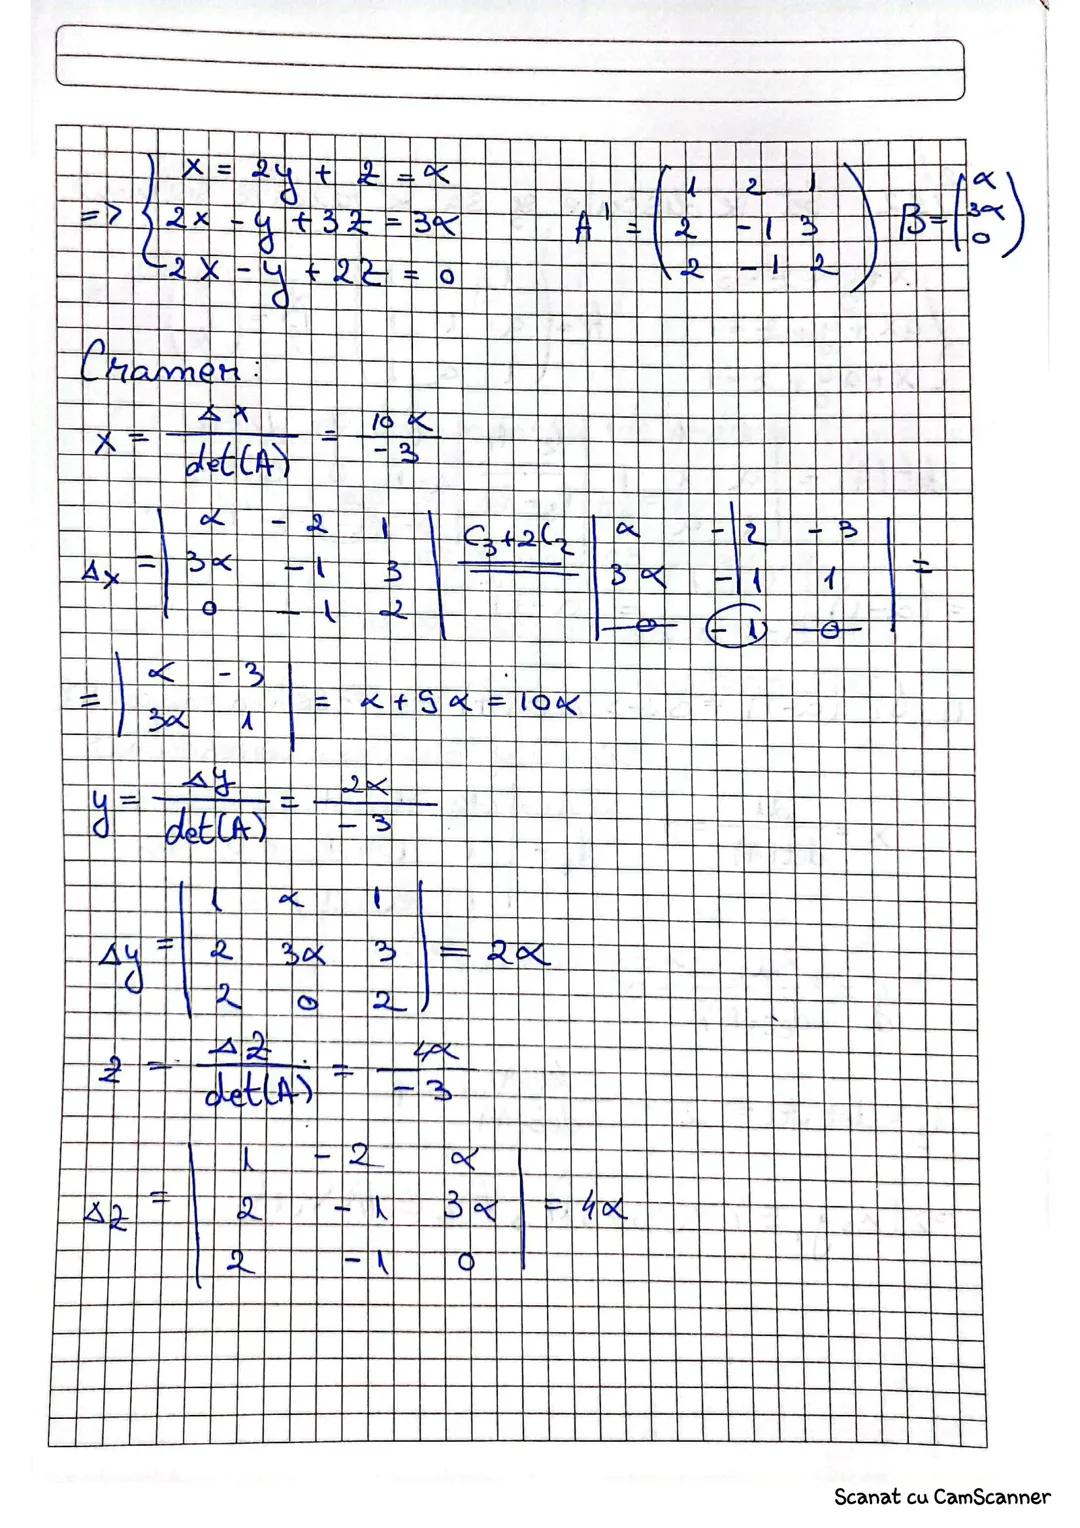 => { x = 2y + z = α
2x - y + 3z = 3α
2x - y + 2z = 0
A' = ( 1 2 1
2 -1 3
2 -1 2 )
B = ( α
3α
0 )
Cramer:
x = Δx / det(A) = 10α / -3
Δx = | α -2 1
3α -1 3
0 -1 2 |
C3+2C2
| α -2 -3
3α -1 1
0 -1 0 | =
= | α -3
3α 1 | = α + 9α = 10α
y = Δy / det(A) = 2α / -3
Δy = | 1 α 1
2 3α 3
2 0 2 | = 2α
z = Δz / det(A) = 4α / -3
Δz = | 1 -2 α
2 -1 3α
2 -1 0 | = 4α
Scanat cu CamScanner